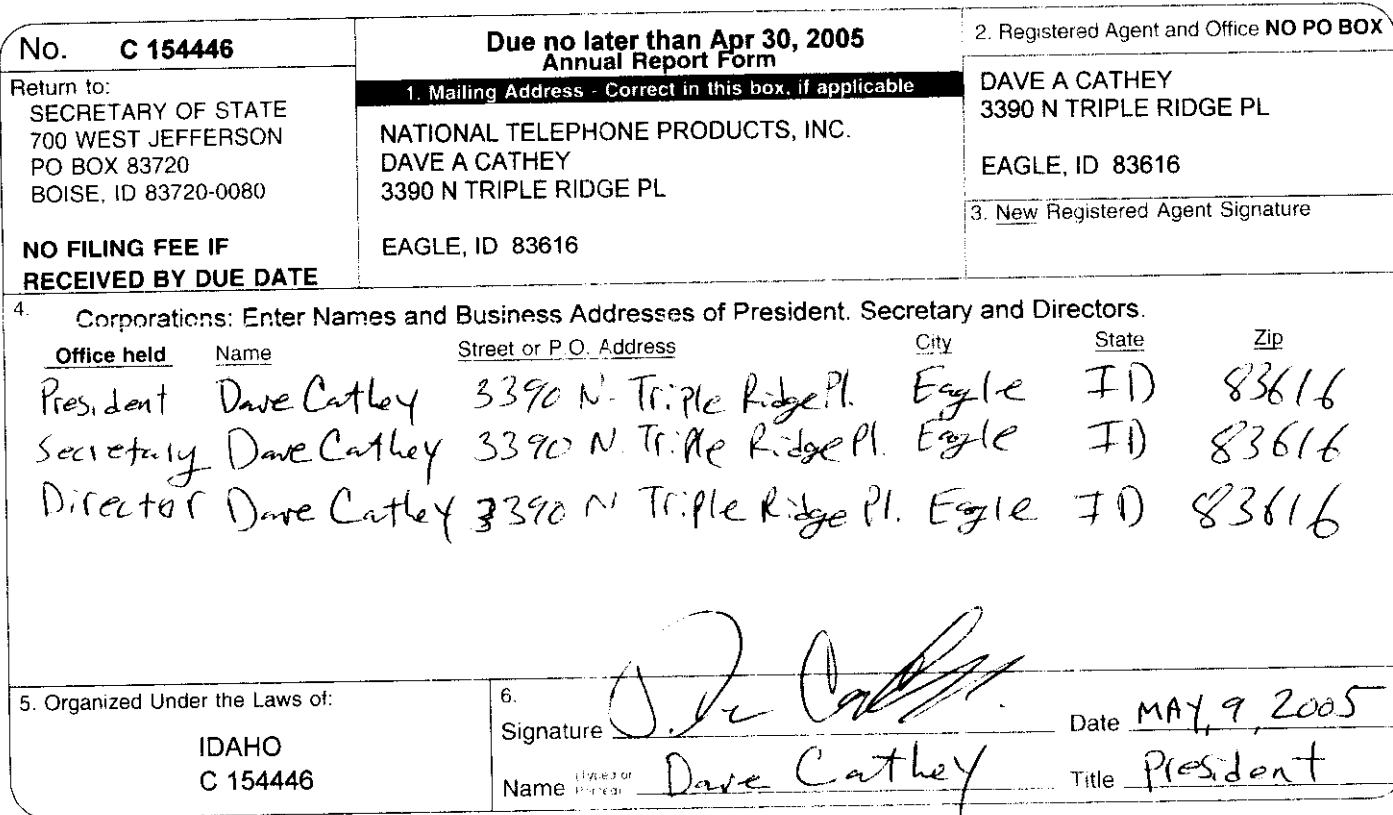 No. C 154446
Return to:
SECRETARY OF STATE
700 WEST JEFFERSON
PO BOX 83720
BOISE, ID 83720-0080
NO FILING FEE IF
RECEIVED BY DUE DATE
Due no later than Apr 30, 2005
Annual Report Form
1. Mailing Address - Correct in this box, if applicable
NATIONAL TELEPHONE PRODUCTS, INC.
DAVE A CATHEY
3390 N TRIPLE RIDGE PL
EAGLE, ID 83616
2. Registered Agent and Office NO PO BOX
DAVE A CATHEY
3390 N TRIPLE RIDGE PL
EAGLE, ID 83616
3. New Registered Agent Signature
4. Corporations: Enter Names and Business Addresses of President. Secretary and Directors.
Office held Name Street or P.O. Address City State Zip
President Dave Cathey 3390 N. Triple Ridge Pl. Eagle ID 83616
Secretary Dave Cathey 3390 N. Triple Ridge Pl. Eagle ID 83616
Director Dave Cathey 3390 N Triple Ridge Pl. Eagle ID 83616
5. Organized Under the Laws of:
IDAHO
C 154446
6.
Signature
Date MAY, 9, 2005
Name Dave Cathey
Title President